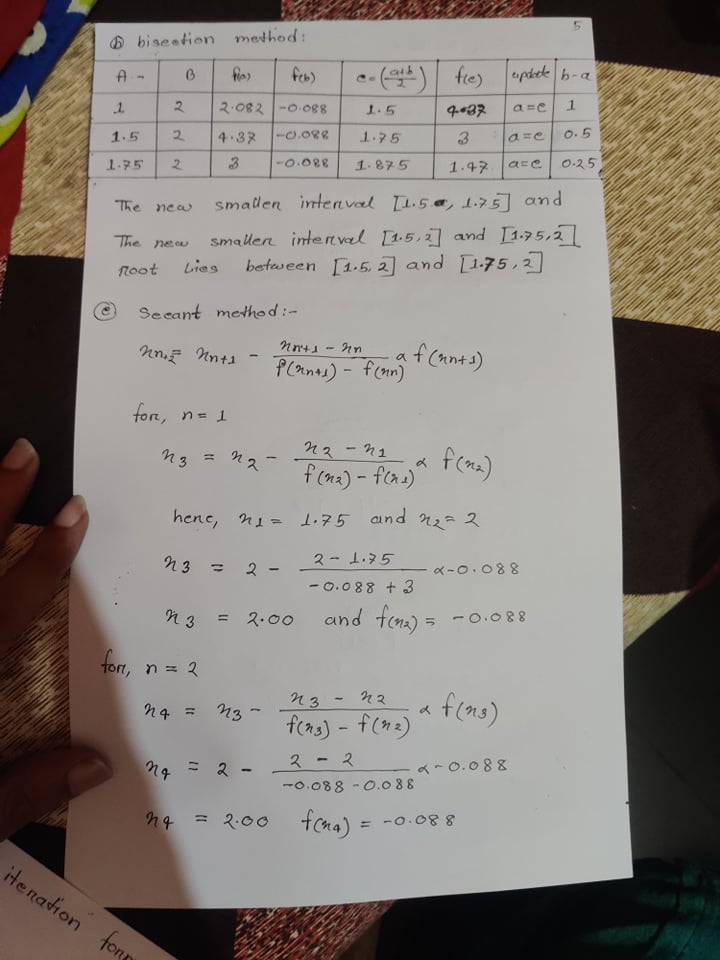 5
(b) bisection method:
A - B f(a) f(b) c = (a+b/2) f(c) update b-a
1 2 2.082 -0.088 1.5 4.37 a=c 1
1.5 2 4.37 -0.088 1.75 3 a=c 0.5
1.75 2 3 -0.088 1.875 1.47 a=c 0.25
The new smaller interval [1.5, 1.75] and
The new smaller interval [1.5, 2] and [1.75, 2]
root lies between [1.5, 2] and [1.75, 2]
(c) Secant method:-
xn+2 = xn+1 - xn+1 - xn / f(xn+1) - f(xn) × f(xn+1)
for, n = 1
x3 = x2 - x2 - x1 / f(x2) - f(x1) × f(x2)
here, x1 = 1.75 and x2 = 2
x3 = 2 - 2 - 1.75 / -0.088 + 3 × -0.088
x3 = 2.00 and f(x2) = -0.088
for, n = 2
x4 = x3 - x3 - x2 / f(x3) - f(x2) × f(x3)
x4 = 2 - 2 - 2 / -0.088 - 0.088 × -0.088
x4 = 2.00 f(x4) = -0.088
iteration form